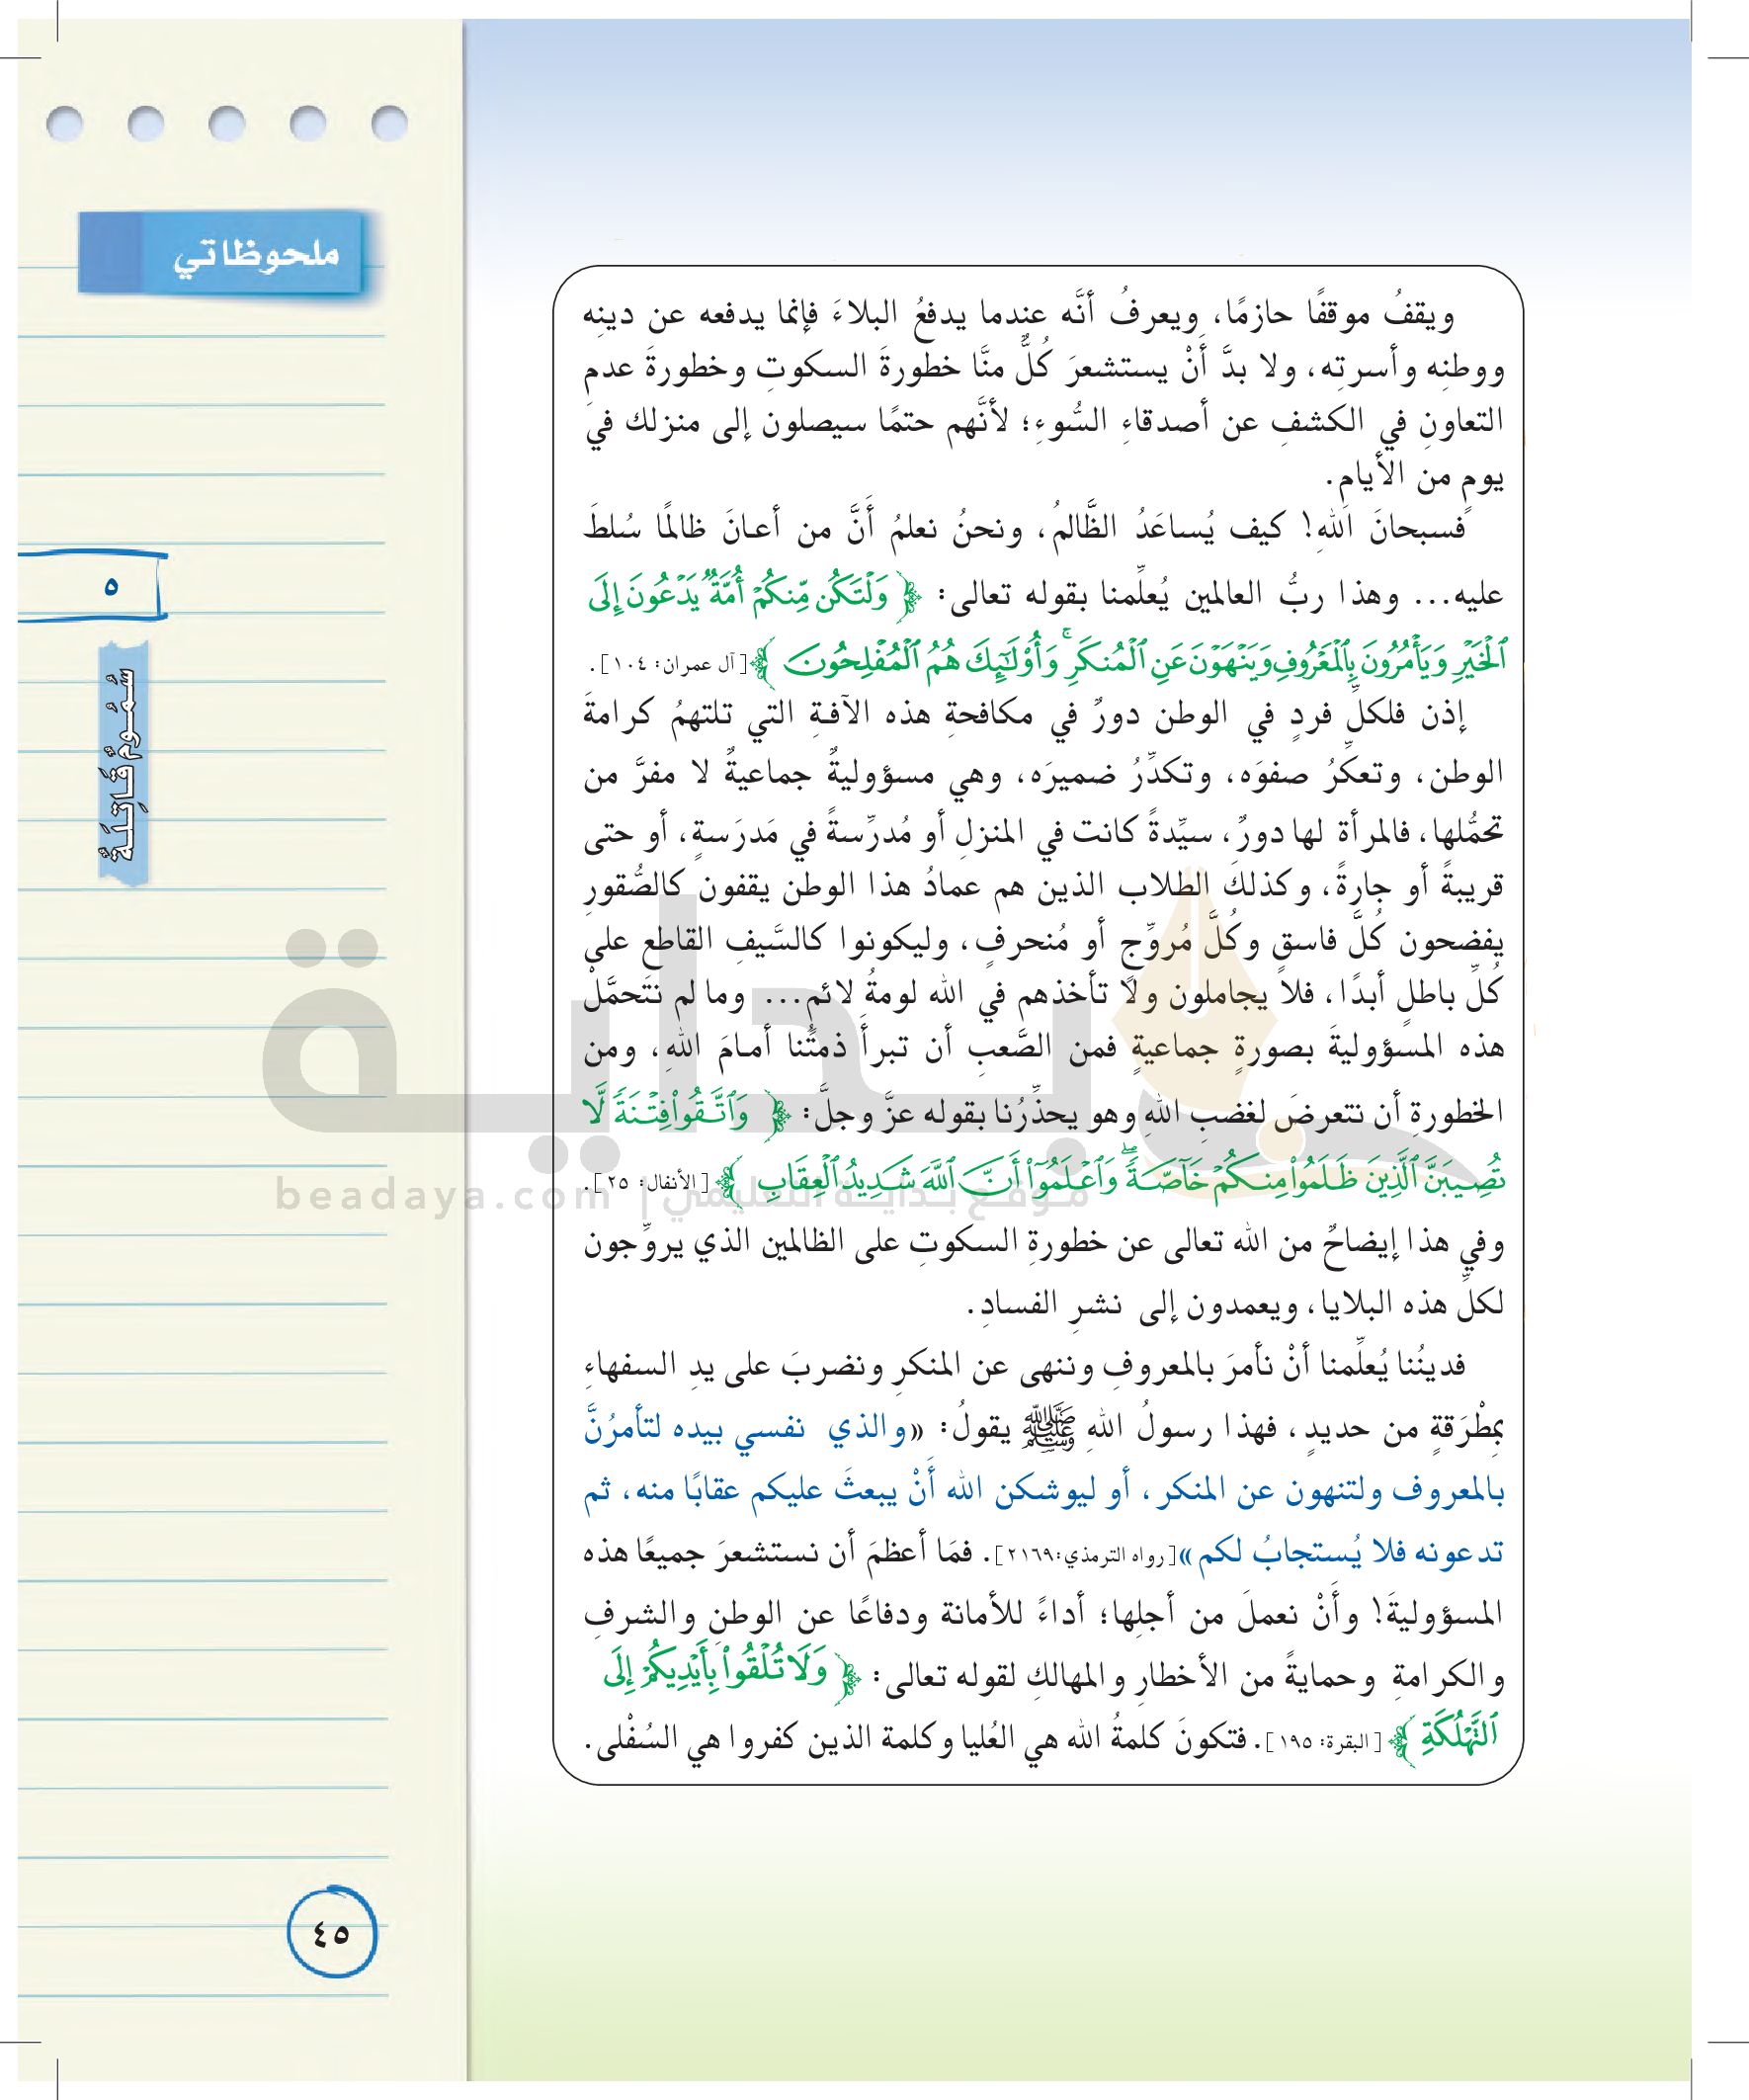 ملحوظاتي
٥
سُمُومٌ قَاتِلَةٌ
ويقفُ موقفًا حازمًا، ويعرفُ أنَّه عندما يدفعُ البلاءَ فإنما يدفعه عن دينِه
ووطنِه وأسرتِه، ولا بدَّ أنْ يستشعرَ كُلٌّ منَّا خطورةَ السكوتِ وخطورةَ عدمِ
التعاونِ في الكشفِ عن أصدقاءِ السُّوءِ؛ لأنَّهم حتمًا سيصلون إلى منزلك في
يومٍ من الأيامِ.
فسبحانَ اللهِ! كيف يُساعَدُ الظَّالمُ، ونحنُ نعلمُ أَنَّ من أعـانَ ظالمًا سُلطَ
عليه... وهذا ربُّ العالمين يُعلِّمنا بقوله تعالى: ﴿ وَلْتَكُن مِّنكُمْ أُمَّةٌ يَدْعُونَ إِلَى
ٱلْخَيْرِ وَيَأْمُرُونَ بِٱلْمَعْرُوفِ وَيَنْهَوْنَ عَنِ ٱلْمُنكَرِ ۚ وَأُو۟لَـٰٓئِكَ هُمُ ٱلْمُفْلِحُونَ ﴾ [آل عمران: ١٠٤].
إذن فلكلِّ فردٍ في الوطن دورٌ في مكافحةِ هذه الآفـةِ التي تلتهمُ كرامةَ
الوطن، وتعكِّرُ صفوَه، وتكدِّرُ ضميرَه، وهي مسؤوليةٌ جماعيةٌ لا مفرَّ من
تحمُّلها، فالمرأة لها دورٌ، سيِّدةً كانت في المنزلِ أو مُدرِّسةً في مَدرَسةٍ، أو حتى
قريبةً أو جارةً، وكذلك الطلاب الذين هم عمادُ هذا الوطن يقفون كالصُّقورِ
يفضحون كُلَّ فاسقٍ وكُلَّ مُروِّجٍ أو مُنحرفٍ، وليكونوا كالسَّيفِ القاطع على
كُلِّ باطلٍ أبدًا، فلا يجاملون ولا تأخذهم في الله لومةُ لائمٍ... وما لم نتَحمَّلْ
هذه المسؤوليةَ بصورةٍ جماعيةٍ فمن الصَّعبِ أن تبرأَ ذمتُنا أمـامَ اللهِ، ومن
الخطورةِ أن نتعرضَ لغضبِ اللهِ وهو يحذِّرُنا بقوله عزَّ وجلَّ: ﴿ وَٱتَّقُوا۟ فِتْنَةً لَّا
تُصِيبَنَّ ٱلَّذِينَ ظَلَمُوا۟ مِنكُمْ خَآصَّةً ۖ وَٱعْلَمُوٓا۟ أَنَّ ٱللَّهَ شَدِيدُ ٱلْعِقَابِ ﴾ [الأنفال: ٢٥].
وفي هذا إيضاحٌ من الله تعالى عن خطورةِ السكوتِ على الظالمين الذي يروِّجون
لكلِّ هذه البلايا، ويعمدون إلى نشرِ الفسادِ.
فدينُنا يُعلِّمنا أنْ نأمرَ بالمعروفِ وننهى عن المنكرِ ونضربَ على يدِ السفهاءِ
بمِطْرَقةٍ من حديدٍ، فهذا رسولُ اللهِ ﷺ يقولُ: «والذي نفسي بيده لتأمرُنَّ
بالمعروف ولتنهون عن المنكر، أو ليوشكن الله أَنْ يبعثَ عليكم عقابًا منه، ثم
تدعونه فلا يُستجابُ لكم» [رواه الترمذي: ٢١٦٩]. فمَا أعظمَ أن نستشعرَ جميعًا هذه
المسؤوليةَ! وأَنْ نعملَ من أجلِها؛ أداءً للأمانة ودفاعًا عن الوطنِ والشرفِ
والكرامةِ وحمايةً من الأخطارِ والمهالكِ لقوله تعالى: ﴿ وَلَا تُلْقُوا۟ بِأَيْدِيكُمْ إِلَى
ٱلتَّهْلُكَةِ ﴾ [البقرة: ١٩٥]. فتكونَ كلمةُ الله هي العُليا وكلمة الذين كفروا هي السُفْلى.
بداية
موقع بداية التعليمي | beadaya.com
٤٥